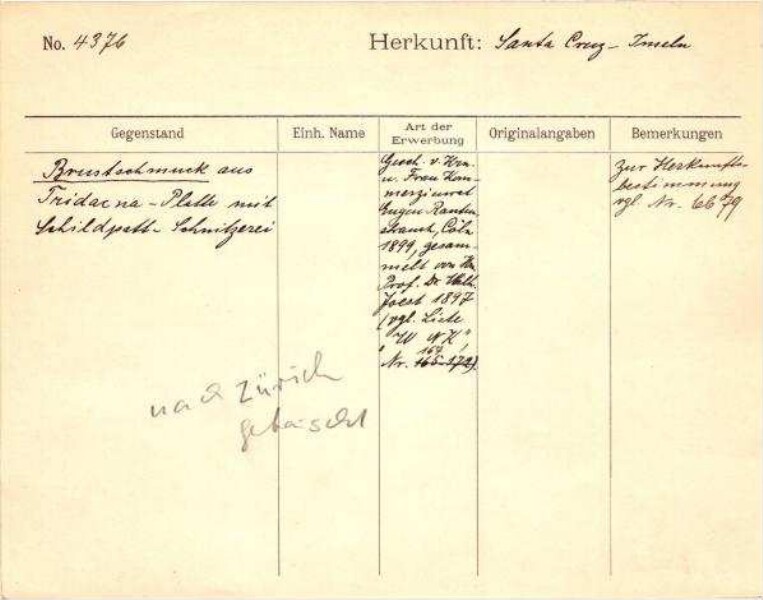 No. 4376 Herkunft: Santa Cruz-Inseln
Gegenstand Einh. Name Art der Erwerbung Originalangaben Bemerkungen
Brustschmuck aus
Tridacna-Platte mit
Schildpatt-Schnitzerei
Gesch. v. Hrn.
u. Frau Kom-
merzienrat
Eugen Rauten
strauch, Cöln
1899, gesam-
melt von Hn.
Prof. Dr. Wilh.
Joest 1897
(vgl. Liste
"W N K",
164
Nr. 165-172)
zur Herkunfts-
bestimmung
vgl. Nr. 6679
nach Zürich
getauscht